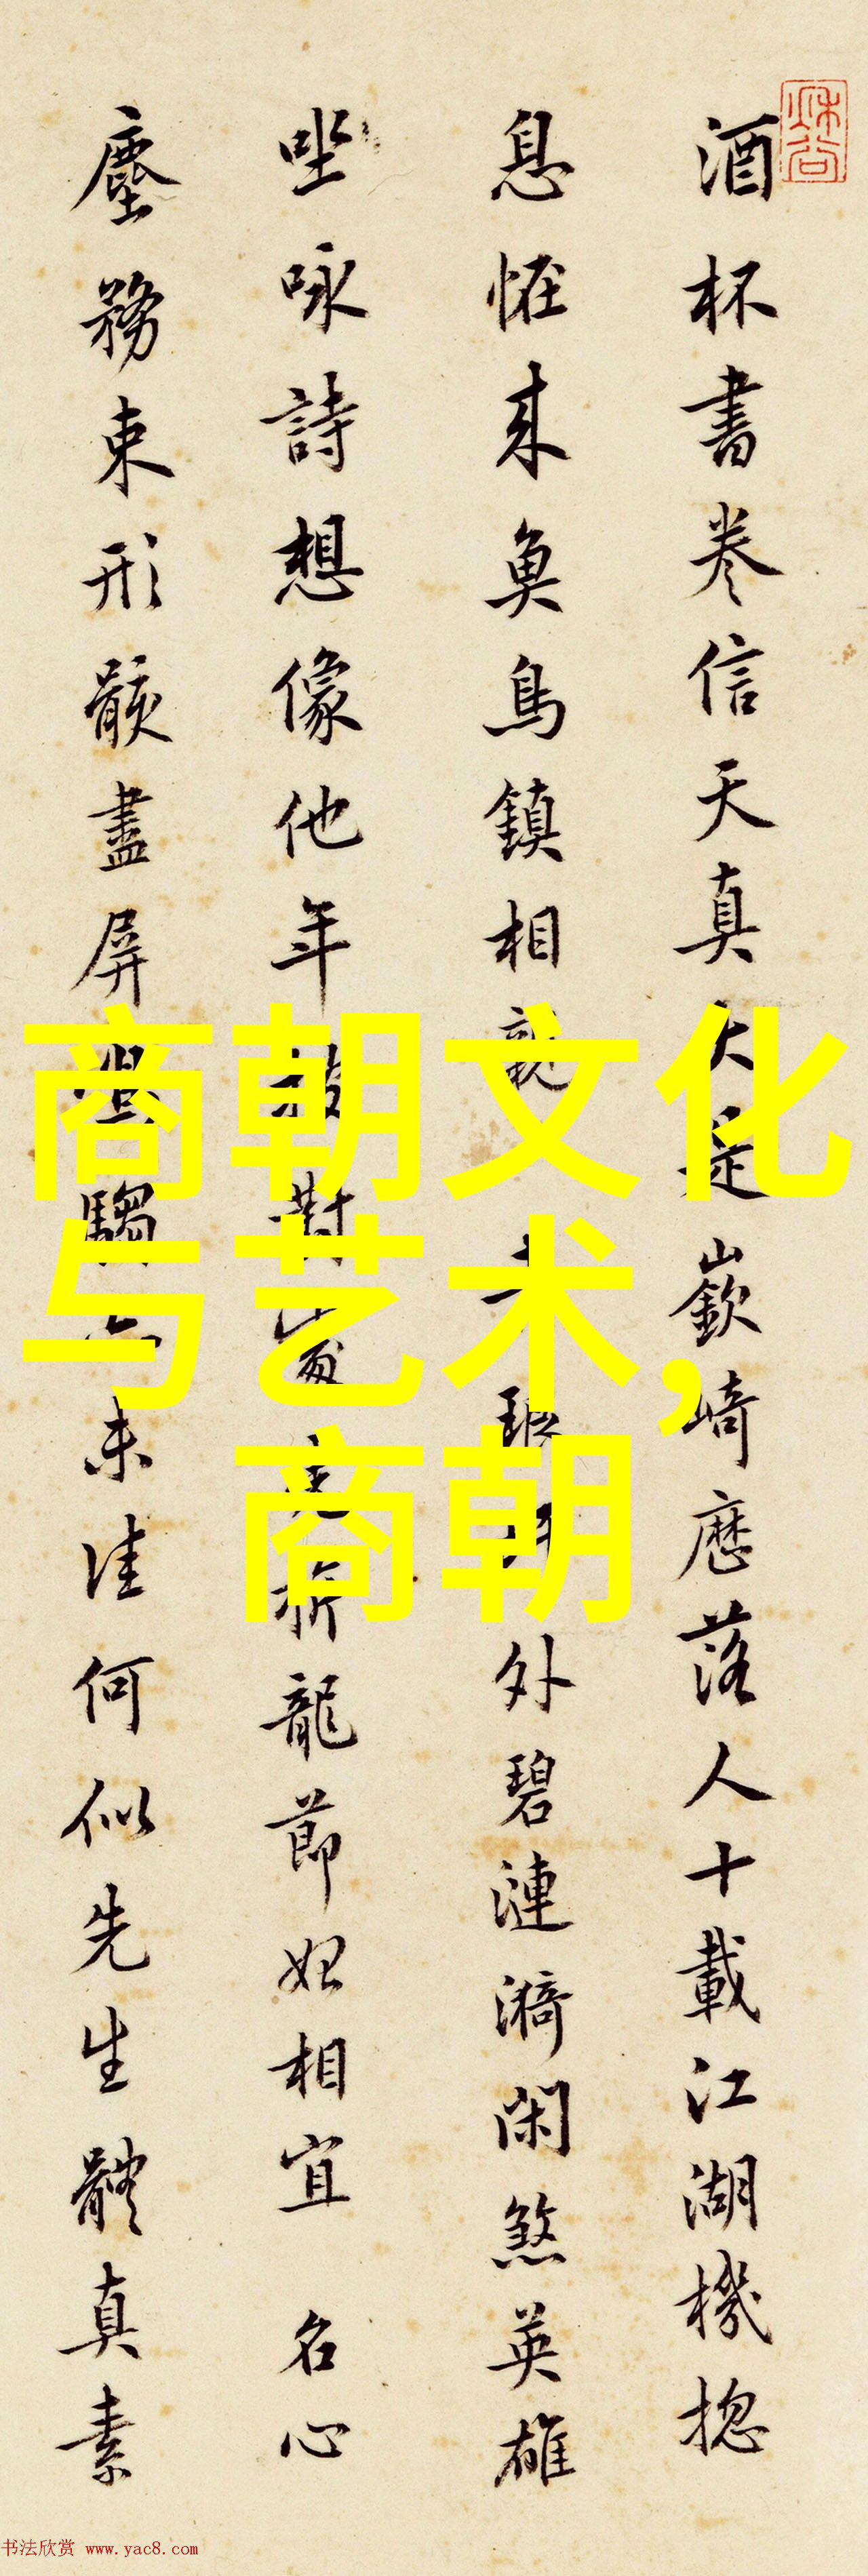 酒杯書卷信天真大是嶔崎歷落人十載江湖機揔
息恠来魚鳥鎮相親 外碧漣漪閑煞英雄
坐咏詩想像他年 龍節妃相宜 名心
塵務束形骸盡屏 未佳何似先生體真素
商朝文化
与艺术,
商朝
书法欣赏 www.yac8.com